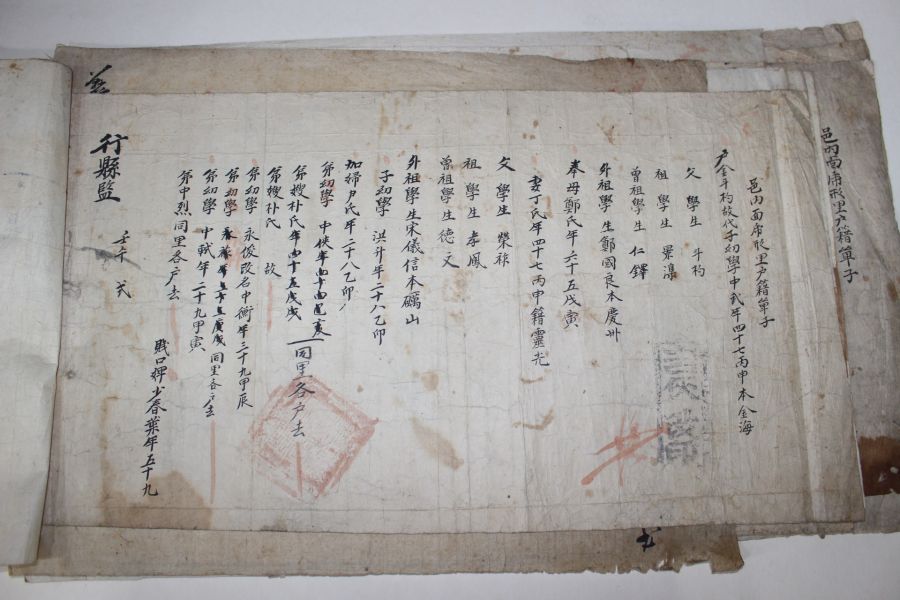 邑內面席形里戶籍單子
邑內面席形里戶籍單子
戶金斗杓故代子幼學中武年四十七丙申本金海
父 學生 斗杓
祖 學生
曾祖學生 仁鐸
外祖學生鄭國良本慶州
奉母鄭氏年六十五戊寅
妻丁氏年四十七丙申籍靈光
父 學生 榮祿
祖 學生 孝鳳
曾祖學生德文
外祖學生宋儀信本礪山
子幼學 洪升年二十八乙卯
加婦尹氏年二十八乙卯
第幼學
第嫂朴氏年四十五戊戌 同里各戶去
第嫂朴氏 故
第幼學 永俊改名中衡年三十九甲辰
第幼學 同里各戶去
第幼學 中軾年二十九甲寅
第中烈同里各戶去
賤口婢少春葉年五十九
壬子 式
行縣監